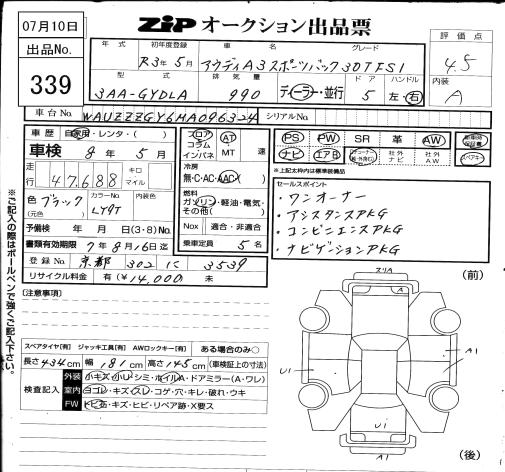 07月10日
出品No.
339
ZIP オークション出品票
年式 初年度登録 車名 グレード
R3年5月 アウディA3スポーツバック30TFSI
型式 排気量 ドア ハンドル
3AA-GYDLA 990 ディーラー・並行 5 左・右
評価点
4.5
内装
A
車台No. WAUZZZGY6MA096324 シリアルNo.
車歴 自家用・レンタ・( )
車検 8年 5月
走行 47,688 キロ マイル
色 ブラック (元色) カラーNo. LY9T 内装色
予備検 年 月 日(3・8)No.
書類有効期限 7年8月16日迄
登録No. 京都 302 に 3539
リサイクル料金 有(¥14,000) 未
フロア コラム インパネ AT MT 速
冷房
無・C・AC・AAC
燃料
ガソリン・軽油・電気・その他( )
Nox 適合・非適合
乗車定員 5名
PS PW SR 革 AW 新車時保証書
ナビ エアB 社外ナビ 社外AW スペアキー
*上記太枠内は標準装備品
セールスポイント
・ワンオーナー
・アシスタンスPKG
・コンビニエンスPKG
・ナビゲーションPKG
(注意事項)
スペアタイヤ[有] ジャッキ工具[有] AWロックキー[有] ある場合のみ○
長さ434cm 幅181cm 高さ145cm (車検証上の寸法)
検査記入
外装 小キズ・小U・シミ・ホイルA・ドアミラー(A・ワレ)
室内 ヨゴレ・キズ・スレ・コゲ・穴・キレ・破れ・ウキ
FW トビ石・キズ・ヒビ・リペア跡・X要ス
※ご記入の際はボールペンで強くご記入下さい。
(前)
A
U1
A1
U1
A1
(後)